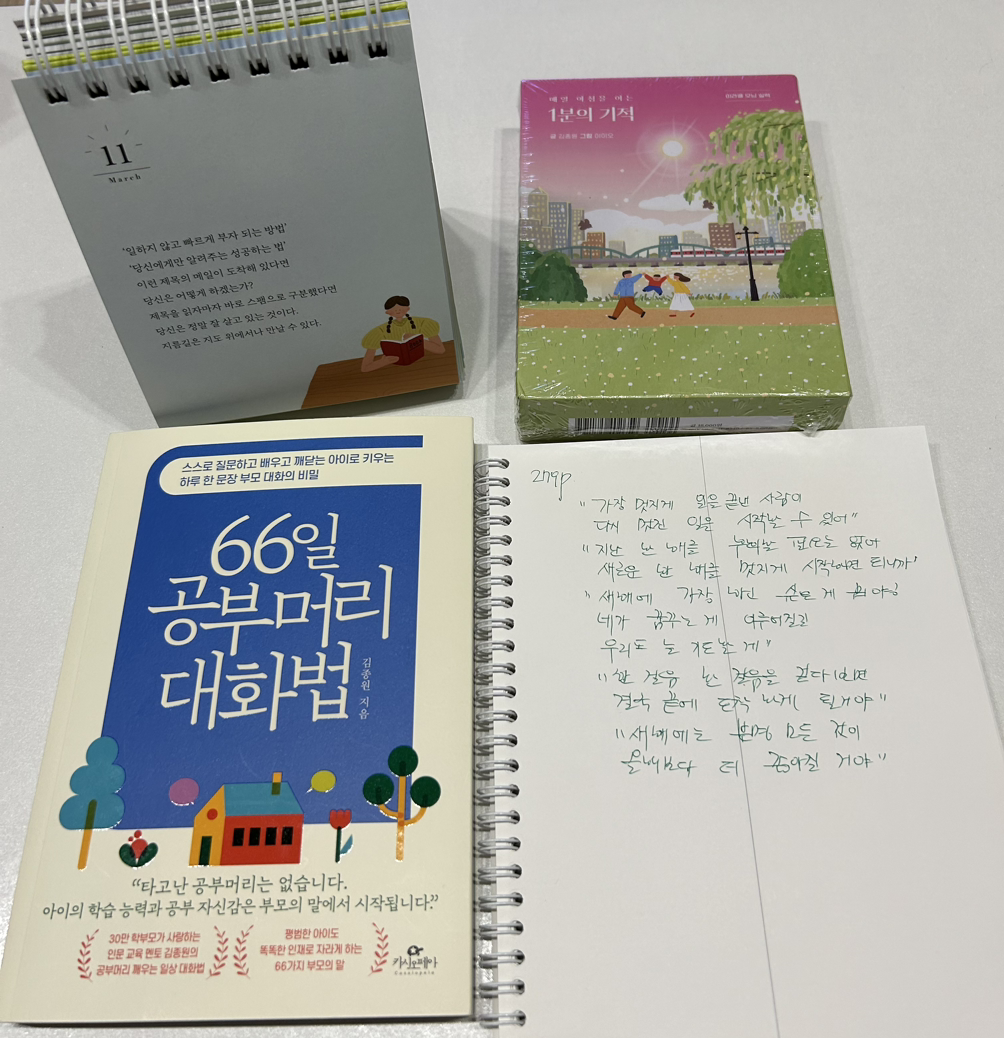 11
March
'일하지 않고 빠르게 부자 되는 방법'
'당신에게만 알려주는 성공하는 법'
이런 제목의 메일이 도착해 있다면
당신은 어떻게 하겠는가?
제목을 읽자마자 바로 스팸으로 구분했다면
당신은 정말 잘 살고 있는 것이다.
지름길은 지도 위에서나 만날 수 있다.
매일 아침을 여는
1분의 기적
글 김종원 그림
스스로 질문하고 배우고 깨닫는 아이로 키우는
하루 한 문장 부모 대화의 비밀
66일
공부머리
대화법
김종원 지음
“타고난 공부머리는 없습니다.
아이의 학습 능력과 공부 자신감은 부모의 말에서 시작됩니다.”
30만 학부모가 사랑하는
인문 교육 멘토 김종원의
공부머리 깨우는 일상 대화법
평범한 아이도
똑똑한 인재로 자라게 하는
66가지 부모의 말
카시오페아
Cassiopeia
279p
"가장 멋지게 일을 끝낸 사람이
다시 멋진 일을 시작할 수 있어"
"지난 한 해를 후회할 필요는 없어
새로운 한 해를 멋지게 시작하면 되니까"
"새해에 가장 바라는 게 뭐야?
네가 꿈꾸는 게 이루어지길
우리도 늘 기도할게"
"한 걸음 한 걸음을 걷다 보면
결국 끝에 도착하게 될거야"
"새해에는 분명 모든 것이
올해보다 더 좋아질 거야"